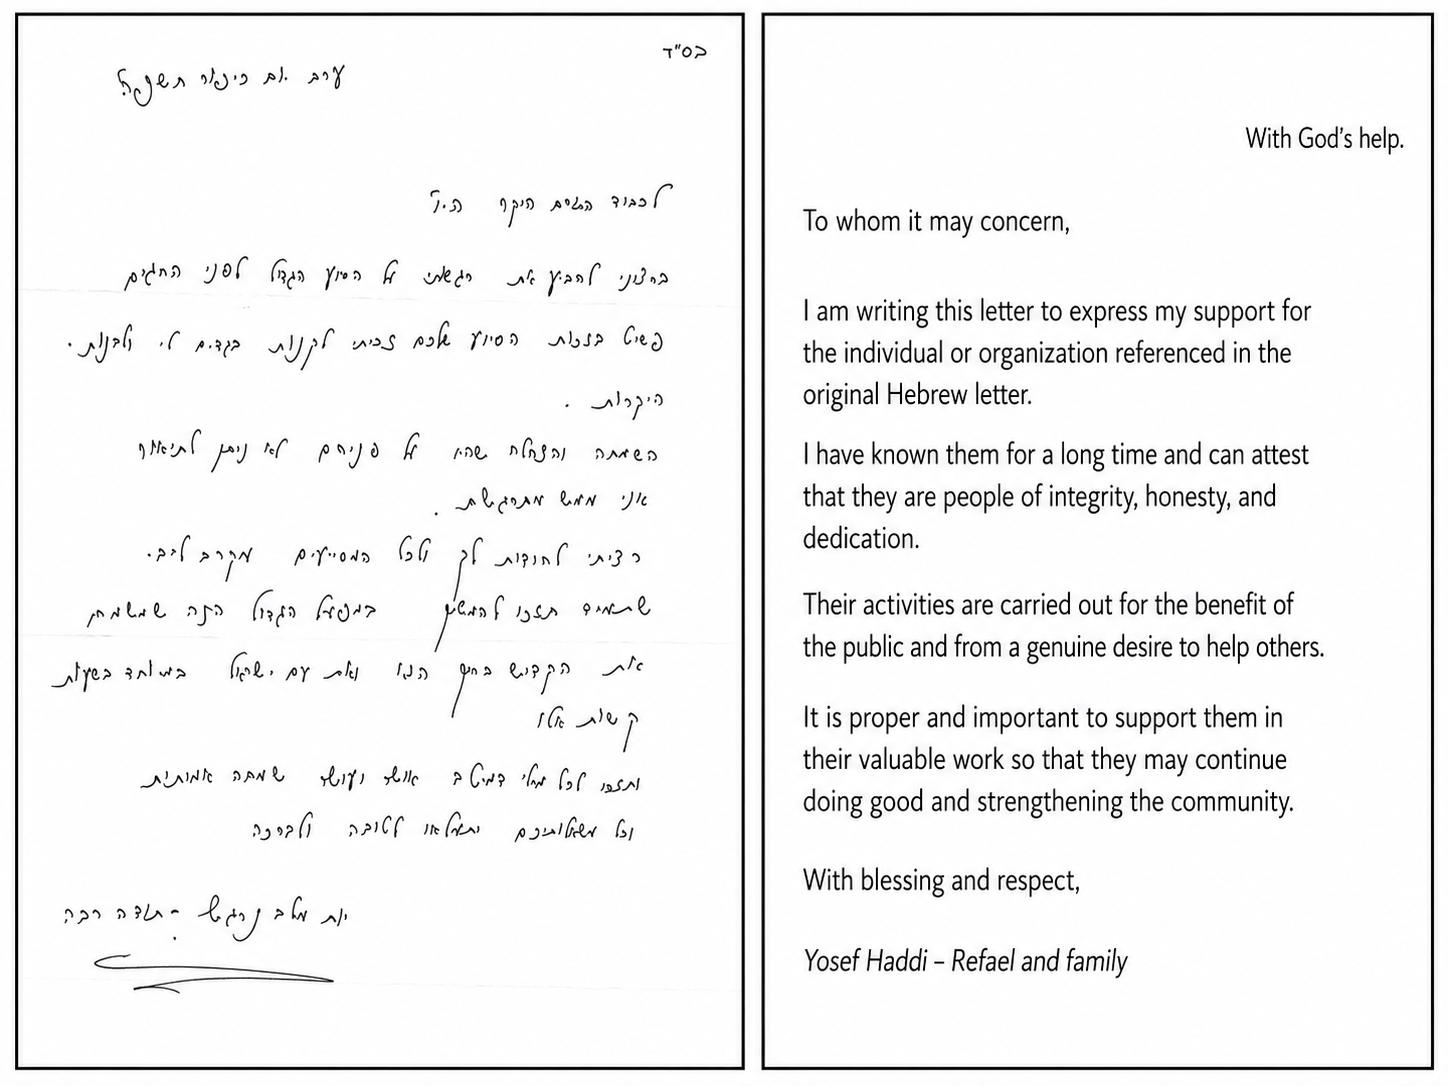 בס"ד
ערב יום כיפור
לכבוד היקר
ברצוני להביע את על הסיוע הגדול לפני החגים
פשוט בזכות הסיוע שלכם זכיתי לקנות בגדים לי ולבנות
היקרות.
השמחה והצהלה שהיו על פניהם לא ניתן לתיאור
אני ממש מתרגשת.
רציתי להודות לך ולכל המסייעים מקרב לב.
שתמיד תזכו להמשיך במפעל הגדול הזה שמשמח
את ואת עם ישראל במיוחד בשעות
קשות אלו
ותזכו לכל מילי דמיטב אושר ועושר שמחה אמיתית
וכל משאלותיכם יתמלאו לטובה ולברכה
תודה רבה
With God's help.
To whom it may concern,
I am writing this letter to express my support for
the individual or organization referenced in the
original Hebrew letter.
I have known them for a long time and can attest
that they are people of integrity, honesty, and
dedication.
Their activities are carried out for the benefit of
the public and from a genuine desire to help others.
It is proper and important to support them in
their valuable work so that they may continue
doing good and strengthening the community.
With blessing and respect,
Yosef Haddi – Refael and family